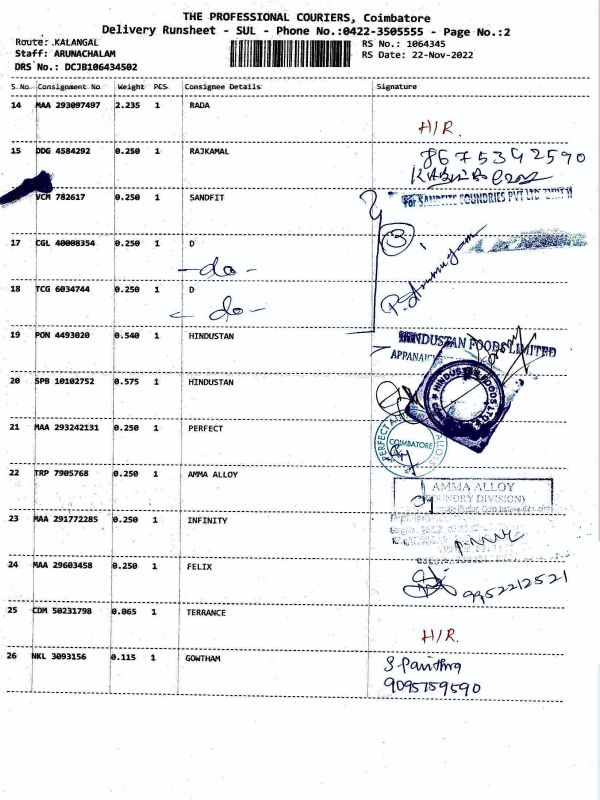 THE PROFESSIONAL COURIERS, Coimbatore
Delivery Runsheet - SUL - Phone No.:0422-3505555 - Page No.:2
Route: KALANGAL
RS No.: 1064345
Staff: ARUNACHALAM
RS Date: 22-Nov-2022
DRS No.: DCJB106434502
S No Consignment No Weight PCS Consignee Details Signature
14 MAA 293097497 2.235 1 RADA
H/R.
15 DDG 4584292 0.250 1 RAJKAMAL
8675392590
VCM 782617 0.250 1 SANDFIT
For SANDFITS FOUNDRIES PVT LTD
3
17 CGL 40008354 0.250 1 D
-do-
18 TCG 6034744 0.250 1 D
- do -
19 PON 4493020 0.540 1 HINDUSTAN
HINDUSTAN FOODS LIMITED
HINDUSTAN FOODS LTD
20 SPB 10102752 0.575 1 HINDUSTAN
21 MAA 293242131 0.250 1 PERFECT
PERFECT ALLOYS
COIMBATORE
22 TRP 7905768 0.250 1 AMMA ALLOY
AMMA ALLOY
(FOUNDRY DIVISION)
23 MAA 291772285 0.250 1 INFINITY
24 MAA 29603458 0.250 1 FELIX
9952212521
25 CDM 50231798 0.065 1 TERRANCE
H/R.
26 NKL 3093156 0.115 1 GOWTHAM
S Pavithra
9095759590